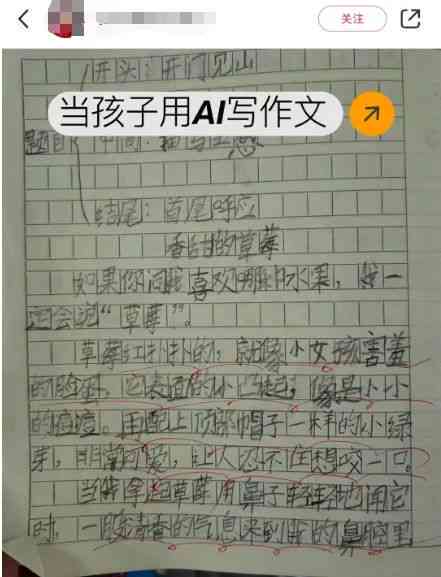 关注
开头：开门见山
当孩子用AI写作文
题目 中间：描写里想
结尾：首尾呼应
香甜的草莓
如果你问我喜欢哪种水果，我一
定会说“草莓”。
草莓红扑扑的，就像小女孩害羞
的脸蛋，它表面的小凸起，像是小小
的痘痘。再配上顶部帽子一样的小绿
芽，非常可爱，让人忍不住想咬一口。
当我拿起草莓用鼻子轻轻地闻它
时，一股清香的气息来到我的鼻腔里